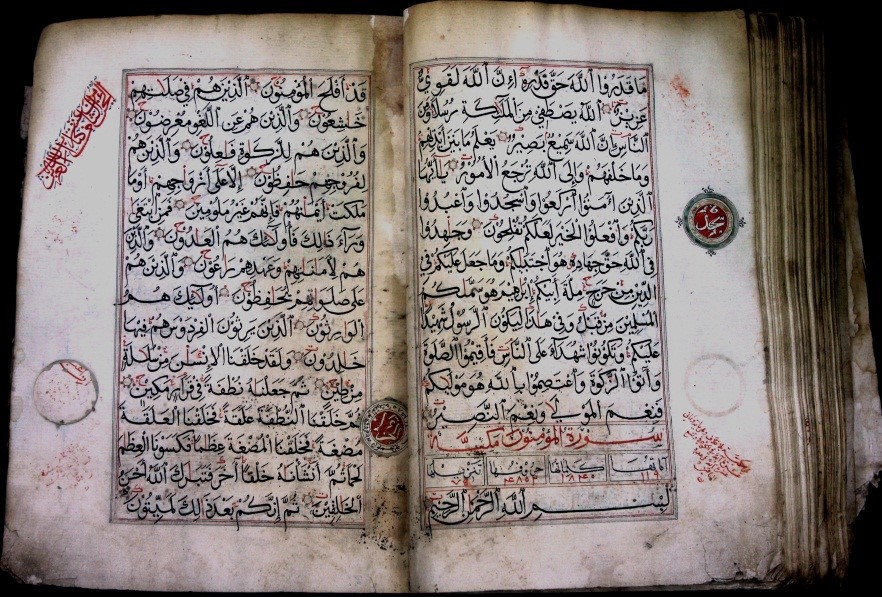 مَا قَدَرُوا اللَّهَ حَقَّ قَدْرِهِ إِنَّ اللَّهَ لَقَوِيٌّ
عَزِيزٌ اللَّهُ يَصْطَفِي مِنَ الْمَلَٰئِكَةِ رُسُلًا وَمِنَ
النَّاسِ إِنَّ اللَّهَ سَمِيعٌ بَصِيرٌ يَعْلَمُ مَا بَيْنَ أَيْدِيهِمْ
وَمَا خَلْفَهُمْ وَإِلَى اللَّهِ تُرْجَعُ الْأُمُورُ يَٰأَيُّهَا
الَّذِينَ ءَامَنُوا ارْكَعُوا وَاسْجُدُوا وَاعْبُدُوا
رَبَّكُمْ وَافْعَلُوا الْخَيْرَ لَعَلَّكُمْ تُفْلِحُونَ وَجَٰهِدُوا
فِي اللَّهِ حَقَّ جِهَادِهِ هُوَ اجْتَبَٰكُمْ وَمَا جَعَلَ عَلَيْكُمْ فِي
الدِّينِ مِنْ حَرَجٍ مِلَّةَ أَبِيكُمْ إِبْرَٰهِيمَ هُوَ سَمَّٰكُمُ
الْمُسْلِمِينَ مِنْ قَبْلُ وَفِي هَٰذَا لِيَكُونَ الرَّسُولُ شَهِيدًا
عَلَيْكُمْ وَتَكُونُوا شُهَدَاءَ عَلَى النَّاسِ فَأَقِيمُوا الصَّلَوٰةَ
وَءَاتُوا الزَّكَوٰةَ وَاعْتَصِمُوا بِاللَّهِ هُوَ مَوْلَٰكُمْ
فَنِعْمَ الْمَوْلَىٰ وَنِعْمَ النَّصِيرُ
سورة المؤمنون مكية
بِسْمِ اللَّهِ الرَّحْمَٰنِ الرَّحِيمِ
سجدة
قَدْ أَفْلَحَ الْمُؤْمِنُونَ الَّذِينَ هُمْ فِي صَلَاتِهِمْ
خَٰشِعُونَ وَالَّذِينَ هُمْ عَنِ اللَّغْوِ مُعْرِضُونَ
وَالَّذِينَ هُمْ لِلزَّكَوٰةِ فَٰعِلُونَ وَالَّذِينَ هُمْ
لِفُرُوجِهِمْ حَٰفِظُونَ إِلَّا عَلَىٰ أَزْوَٰجِهِمْ أَوْ مَا
مَلَكَتْ أَيْمَٰنُهُمْ فَإِنَّهُمْ غَيْرُ مَلُومِينَ فَمَنِ ابْتَغَىٰ
وَرَاءَ ذَٰلِكَ فَأُولَٰئِكَ هُمُ الْعَادُونَ وَالَّذِينَ
هُمْ لِأَمَٰنَٰتِهِمْ وَعَهْدِهِمْ رَاعُونَ وَالَّذِينَ هُمْ
عَلَىٰ صَلَوَٰتِهِمْ يُحَافِظُونَ أُولَٰئِكَ هُمُ
الْوَارِثُونَ الَّذِينَ يَرِثُونَ الْفِرْدَوْسَ هُمْ فِيهَا
خَٰلِدُونَ وَلَقَدْ خَلَقْنَا الْإِنْسَٰنَ مِنْ سُلَٰلَةٍ
مِنْ طِينٍ ثُمَّ جَعَلْنَٰهُ نُطْفَةً فِي قَرَارٍ مَكِينٍ
ثُمَّ خَلَقْنَا النُّطْفَةَ عَلَقَةً فَخَلَقْنَا الْعَلَقَةَ
مُضْغَةً فَخَلَقْنَا الْمُضْغَةَ عِظَٰمًا فَكَسَوْنَا الْعِظَٰمَ
لَحْمًا ثُمَّ أَنْشَأْنَٰهُ خَلْقًا ءَاخَرَ فَتَبَارَكَ اللَّهُ أَحْسَنُ
الْخَٰلِقِينَ ثُمَّ إِنَّكُمْ بَعْدَ ذَٰلِكَ لَمَيِّتُونَ